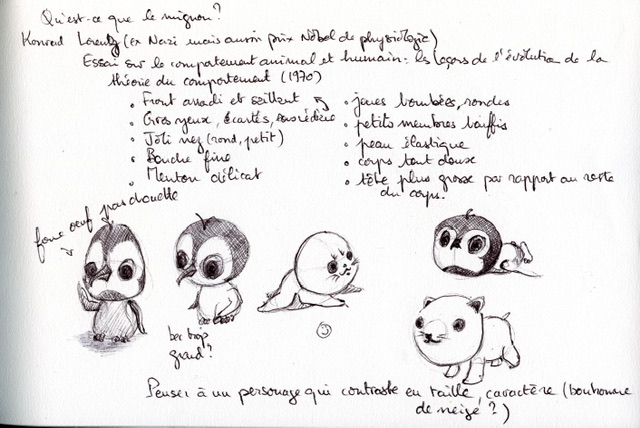 Qu'est-ce que le mignon?
Konrad Lorentz (ex Nazi mais aussi prix Nobel de physiologie)
Essai sur le comportement animal et humain: les leçons de l'évolution de la
théorie du comportement (1970)
• Front arrondi et saillant
• Gros yeux, écartés, sous
• Joli nez (rond, petit)
• Bouche fine
• Menton délicat
• joues bombées, rondes
• petits membres bouffis
• peau élastique
• corps tout doux
• tête plus grosse par rapport au reste
du corps.
forme oeuf pas chouette
bec trop
grand?
Penser à un personage qui contraste en taille, caractère (bonhomme
de neige?)